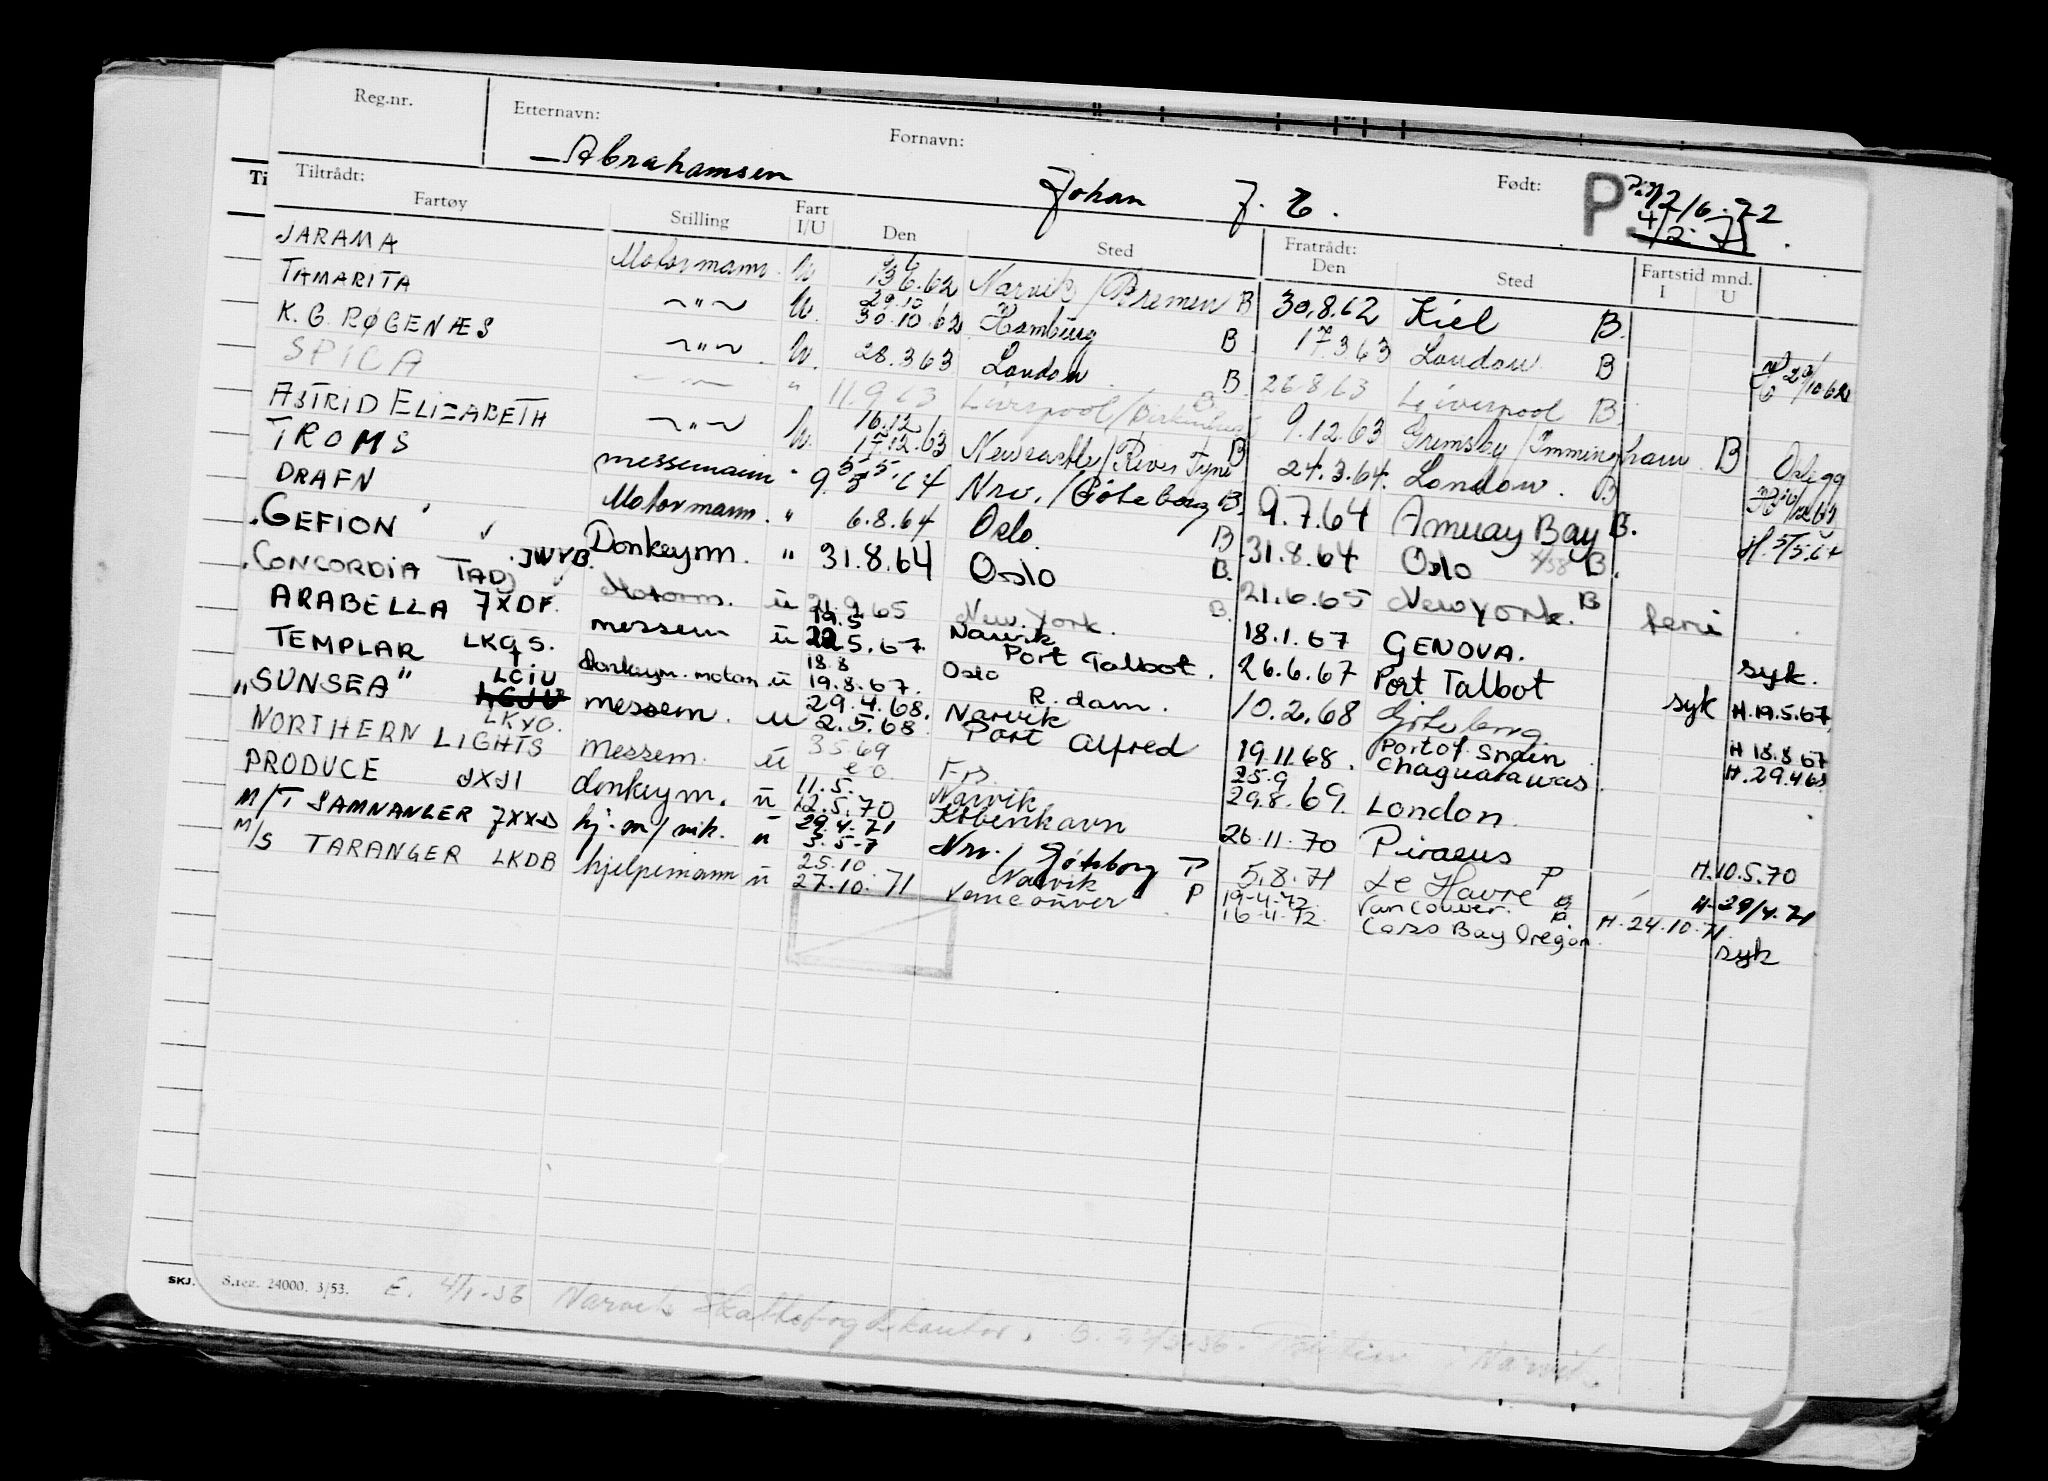 Reg.nr. Etternavn: Fornavn: Født:
Abrahamsen Johan J. E. P. 12/6.72
Tiltrådt: Fratrådt: Fartstid mnd.
Fartøy Stilling Fart I/U Den Sted Den Sted I U
JARAMA Motormann U. 13.6.62 Narvik/Bremen B 30.8.62 Kiel B.
TAMARITA —"— U. 29.10 30.10.62 Hamburg B 17.3.63 London B
K. G. RØGENÆS —"— U. 28.3.63 London B. 26.8.63 Liverpool B.
SPICA " 11.9.63 Liverpool/ B 9.12.63 Grimsby/Immingham B
ASTRID ELIZABETH —"— U. 16.12 17.12.63 Newcastle/River Tyne B 24.3.64. London. B
TROMS messemann " 5.5. 9.5.64 Nrv./Göteborg B. 9.7.64 Amuay Bay B. H. 5/5.64
DRAFN Motormann. " 6.8.64 Oslo. B 31.8.64 Oslo B.
GEFION JWVB. Donkeym. " 31.8.64 Oslo B. 21.6.65 New York. B ferie
CONCORDIA TADJ 7XDF. Motorm. u 21.9.65 New York. B. 18.1.67 GENOVA. syk.
ARABELLA LKQS. messem u 19.5 22.5.67. Narvik Port Talbot. 26.6.67 Port Talbot syk H.19.5.67
TEMPLAR LCIU donkeym. motorm u 18.8 19.8.67. Oslo R.dam. 10.2.68 Göteborg H 18.8 67
"SUNSEA" LKYO. messem. u 29.4.68. 2.5.68 Narvik Port Alfred 19.11.68. Port of Spain Chaguaramas H.29.4.68
NORTHERN LIGHTS messem. u 3.5.69 25.9 29.8.69. London.
PRODUCE JXJI donkeym. u 11.5. 12.5.70 Narvik København 26.11.70 Piraeus H.10.5.70
M/T SAMNANGER 7XXD hj.m/mk. u 29.4.71 3.5-7 Nrv./Gøteborg P 5.8.71 Le Havre P H-29/4.71
M/S TARANGER LKDB hjelpemann u 25.10. 27.10.71 Narvik Vancouver P 19-4-72. 16-4-72 Vancouver. Coos Bay Oregon. H.24.10.71. syk
SKJ. S.reg. 24000. 3/53. E. 4/1-56 Narvik Skattefogdkontor.